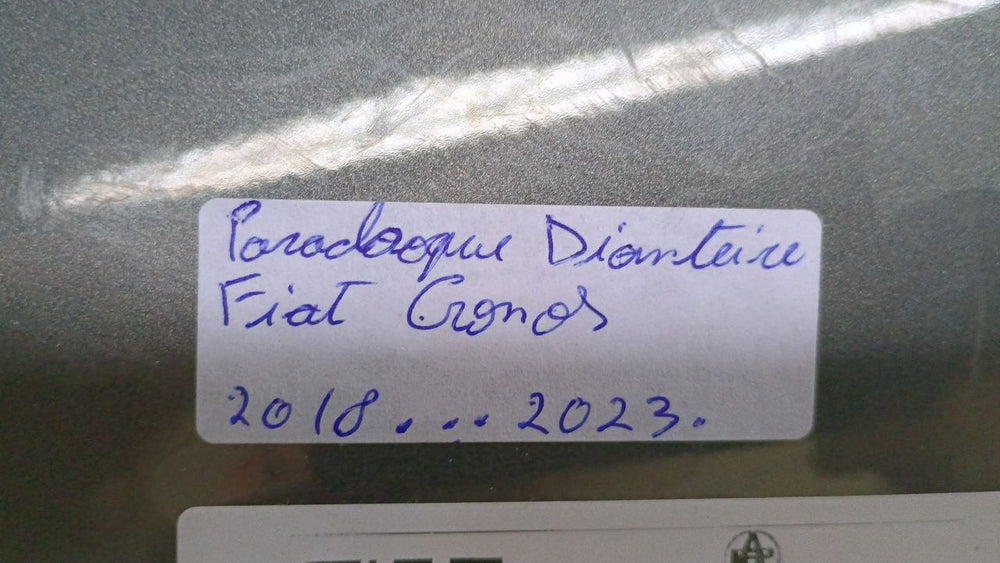 Paradoaque Dianteire
Fiat Cronos
2018.... 2023.